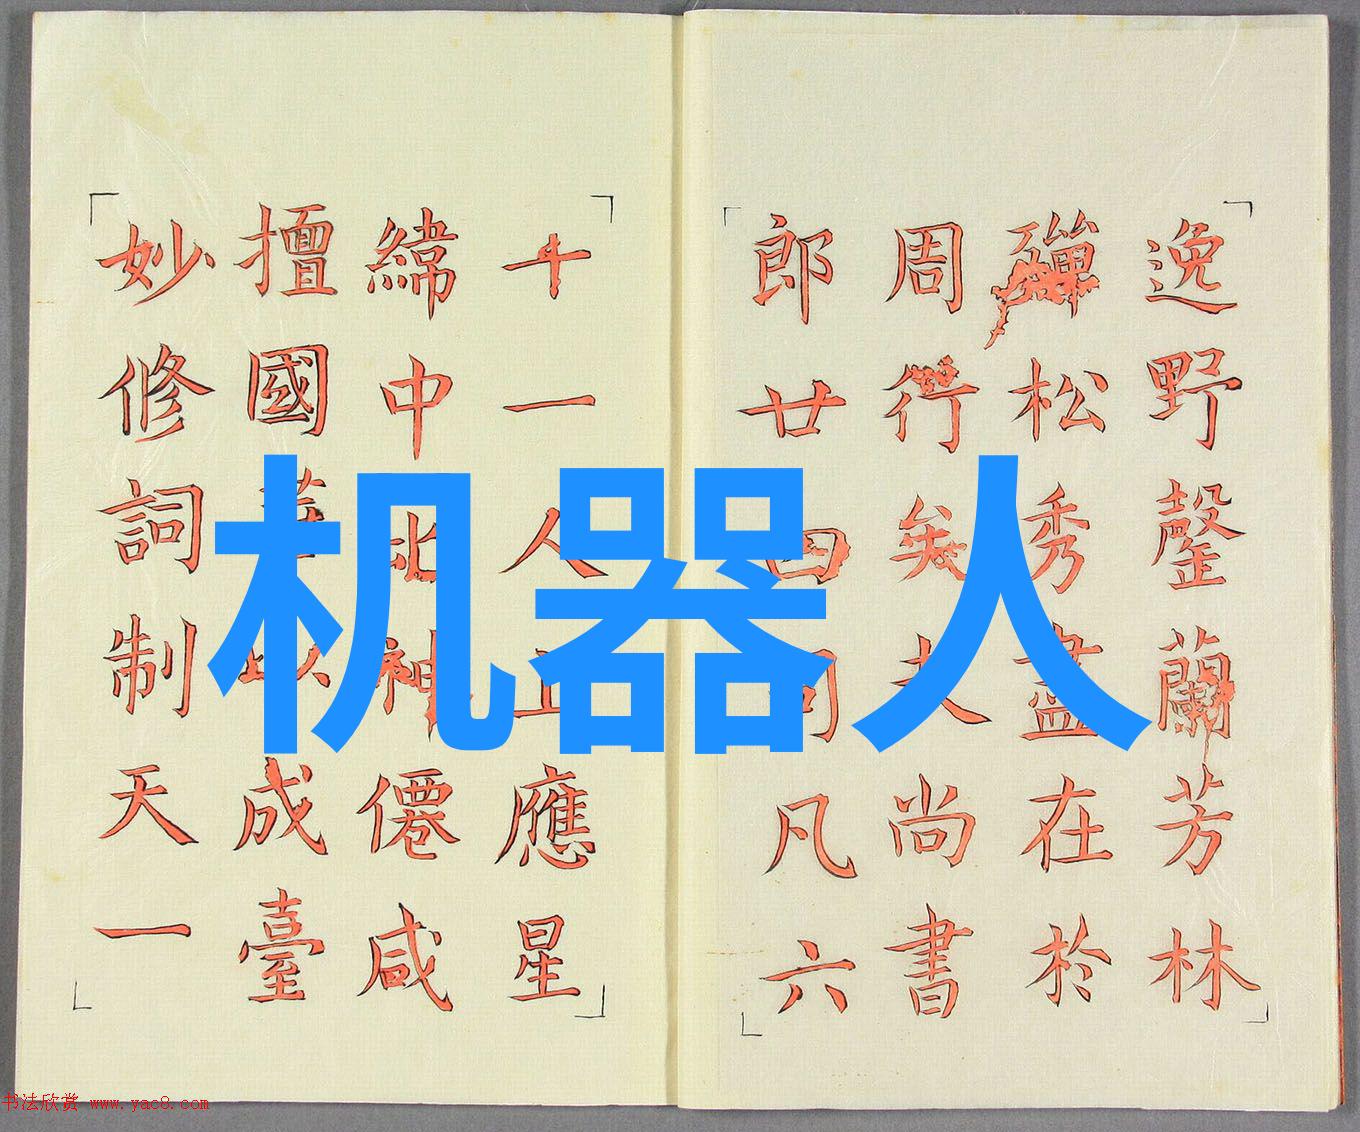 逸野罄蘭芳林
殫松秀盡在於
周行矣夫尚書
郎廿四司凡六
十一人上應星
緯中比神僊咸
擅國華以成臺
妙修詞制天一
机器人
书法欣赏 www.yac8.com